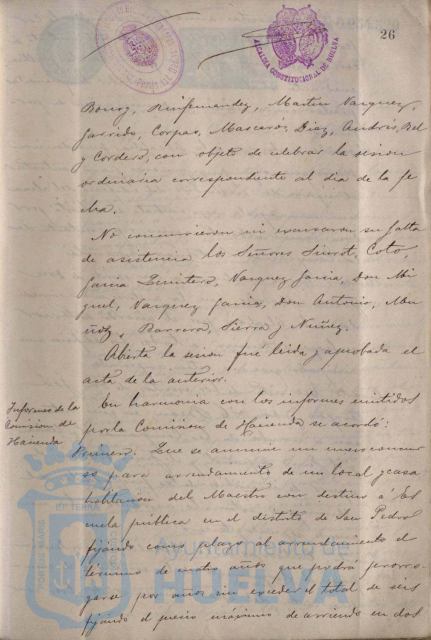 26
ALCALDIA CONSTITUCIONAL DE HUELVA
Bourg, Ruifernandez, Martin Vazquez,
Garrido, Corpas, Mascarós, Diaz, Andrés, Bel
y Cordero, con objeto de celebrar la sesion
ordinaria correspondiente al dia de la fe
cha.
No concurrieron ni excusaron su falta
de asistencia los Señores Siurot, Coto,
Garcia Quintero, Vazquez Garcia, Don Mi
guel, Vazquez Garcia, Don Antonio, Mu
ñoz, Barrera, Sierra y Nuñez.
Abierta la sesion fué leida y aprobada el
acta de la anterior.
Informes de la
Comision de
Hacienda
En harmonia con los informes emitidos
por la Comision de Hacienda se acordó:
Primero. Que se anuncie un
para arrendamiento de un local y casa
habitacion del Maestro con destino á Es
cuela pública en el distrito de San Pedro
fijando como plazo al arrendamiento el
término de cuatro años que podrá prorro
garse por años sin exceder el total de seis
fijando el precio máximo de arriendo en dos
PORTUS MARIS ET TERRÆ
Ayuntamiento de
HUELVA